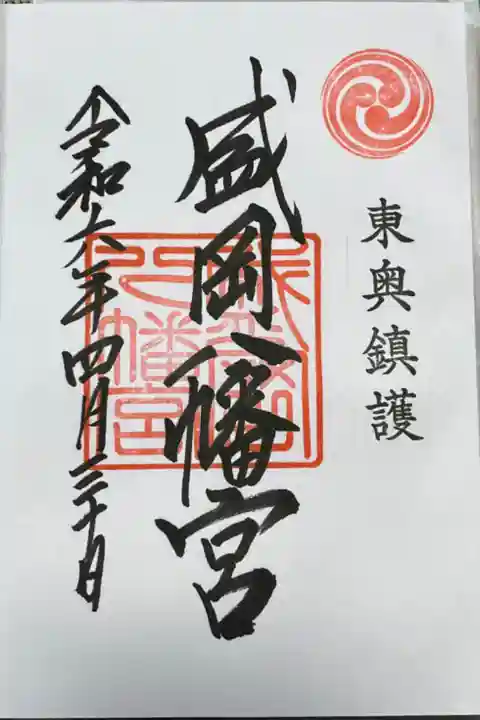 東奥鎮護
盛岡八幡宮
令和六年四月三十日
盛岡八幡宮